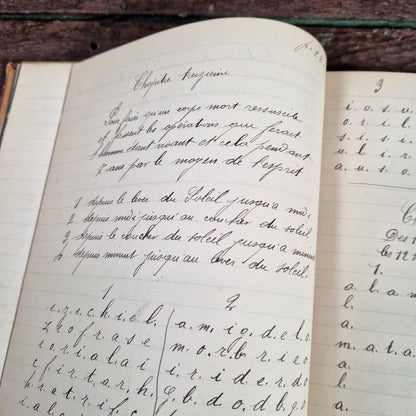 Chapitre treizième
Pour faire qu'un corps mort ressuscite
et fassent les opérations que ferait
l'homme étant vivant et cela pendant
7 ans par le moyen de l'esprit
1 depuis le lever du Soleil jusqu'a midi
2 depuis midi jusqu'au coucher du soleil
3 depuis le coucher du soleil jusqu'a minuit
4 depuis minuit jusqu'au lever du soleil.
1
e.z.e.c.h.i.e.l.
z.e.o.f.r.a.s.e
e.o.r.i.a.l.a.i
c.f.i.r.t.a.r.h.
h.r.a.t.r.i.f.c
2
a.m.i.g.d.e.l.o
m.o.r.b.r.i.e.o
i.r.i.d.e.r.d.o
g.b.d.o.d.b.g.o
3
i.o.s.u.
o.r.i.l.
s.i.s.i.
u.l.i.r.
a.u.s.o.
Des
les 12
1.
a.l.a.m
l.
a.
m.a.t.a.
a.
l.
a.